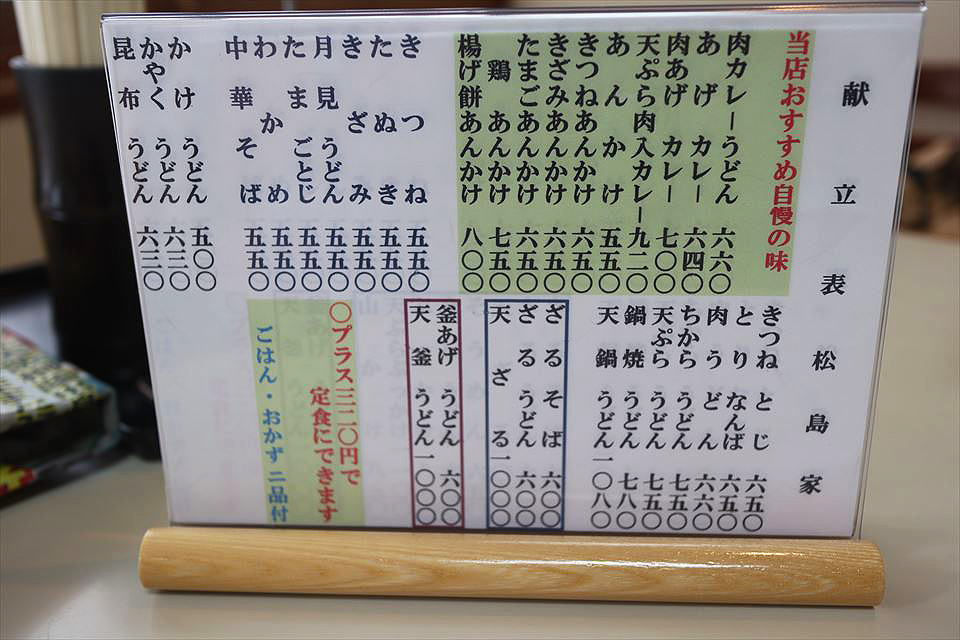 献立表 松島家
当店おすすめ自慢の味
肉カレーうどん 六六〇
あげカレー 六四〇
肉あげカレー 七〇〇
天ぷら肉入カレー 九二〇
あんかけ 五五〇
きつねあんかけ 六五〇
きざみあんかけ 六五〇
たまごあんかけ 六五〇
鶏あんかけ 七五〇
揚げ餅あんかけ 八〇〇
きつね 五五〇
たぬき 五五〇
きざみ 五五〇
月見うどん 五五〇
たまごとじ 五五〇
わかめ 五五〇
中華そば 五五〇
かけうどん 五〇〇
かやくうどん 六三〇
昆布うどん 六三〇
きつねとじ 六五〇
とりなんば 六五〇
肉うどん 六六〇
ちからうどん 七五〇
天ぷらうどん 七五〇
鍋焼うどん 七八〇
天鍋うどん 一〇八〇
ざるそば 六〇〇
ざるうどん 六〇〇
天ざる 一〇〇〇
釜あげうどん 六〇〇
天釜うどん 一〇〇〇
〇プラス三二〇円で
定食にできます
ごはん・おかず二品付